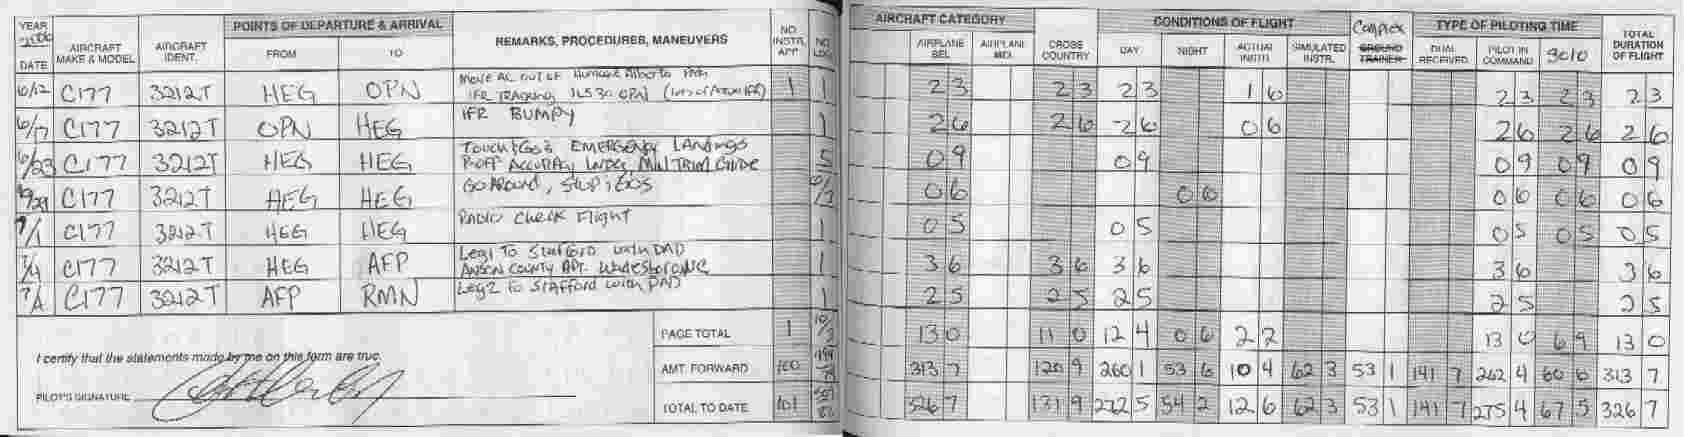 YEAR 2006 DATE | AIRCRAFT MAKE & MODEL | AIRCRAFT IDENT. | POINTS OF DEPARTURE & ARRIVAL FROM | TO | REMARKS, PROCEDURES, MANEUVERS | NO. INSTR. APP. | NO. LDG. | AIRCRAFT CATEGORY AIRPLANE SEL | AIRPLANE MEL | CROSS COUNTRY | CONDITIONS OF FLIGHT DAY | NIGHT | ACTUAL INSTR. | SIMULATED INSTR. | Complex GROUND TRAINER | TYPE OF PILOTING TIME DUAL RECEIVED | PILOT IN COMMAND | Solo | TOTAL DURATION OF FLIGHT
6/12 C177 3212T HEG OPN Move AC out of Hurricane Alberto Path 1 1 2 3 2 3 2 3 1 6 2 3 2 3 2 3
IFR Training ILS 30 OPN (lots of Actual IFR)
6/17 C177 3212T OPN HEG IFR BUMPY 1 2 6 2 6 2 6 0 6 2 6 2 6 2 6
6/23 C177 3212T HEG HEG Touch & Go's EMERGENCY LANDINGS 5 0 9 0 9 0 9 0 9 0 9
P-OFF ACCURACY Under Min Trim Glide
6/29 C177 3212T HEG HEG GO AROUND, STOP & GOS 0 6 0 6 0 6 0 6 0 6
7/1 C177 3212T HEG HEG RADIO Check Flight 1 0 5 0 5 0 5 0 5 0 5
7/4 C177 3212T HEG AFP Leg 1 To Stafford with DAD 1 3 6 3 6 3 6 3 6 3 6
ANSON COUNTY APT. Wadesboro NC
7/4 C177 3212T AFP RMN Leg 2 to Stafford with DAD 1 2 5 2 5 2 5 2 5 2 5
PAGE TOTAL 1 10/3 13 0 11 0 12 4 0 6 2 2 13 0 6 9 13 0
I certify that the statements made by me on this form are true.
AMT. FORWARD 100 313 7 120 9 260 1 53 6 10 4 62 3 53 1 141 7 262 4 60 6 313 7
PILOT'S SIGNATURE
TOTAL TO DATE 101 326 7 131 9 272 5 54 2 12 6 62 3 53 1 141 7 275 4 67 5 326 7